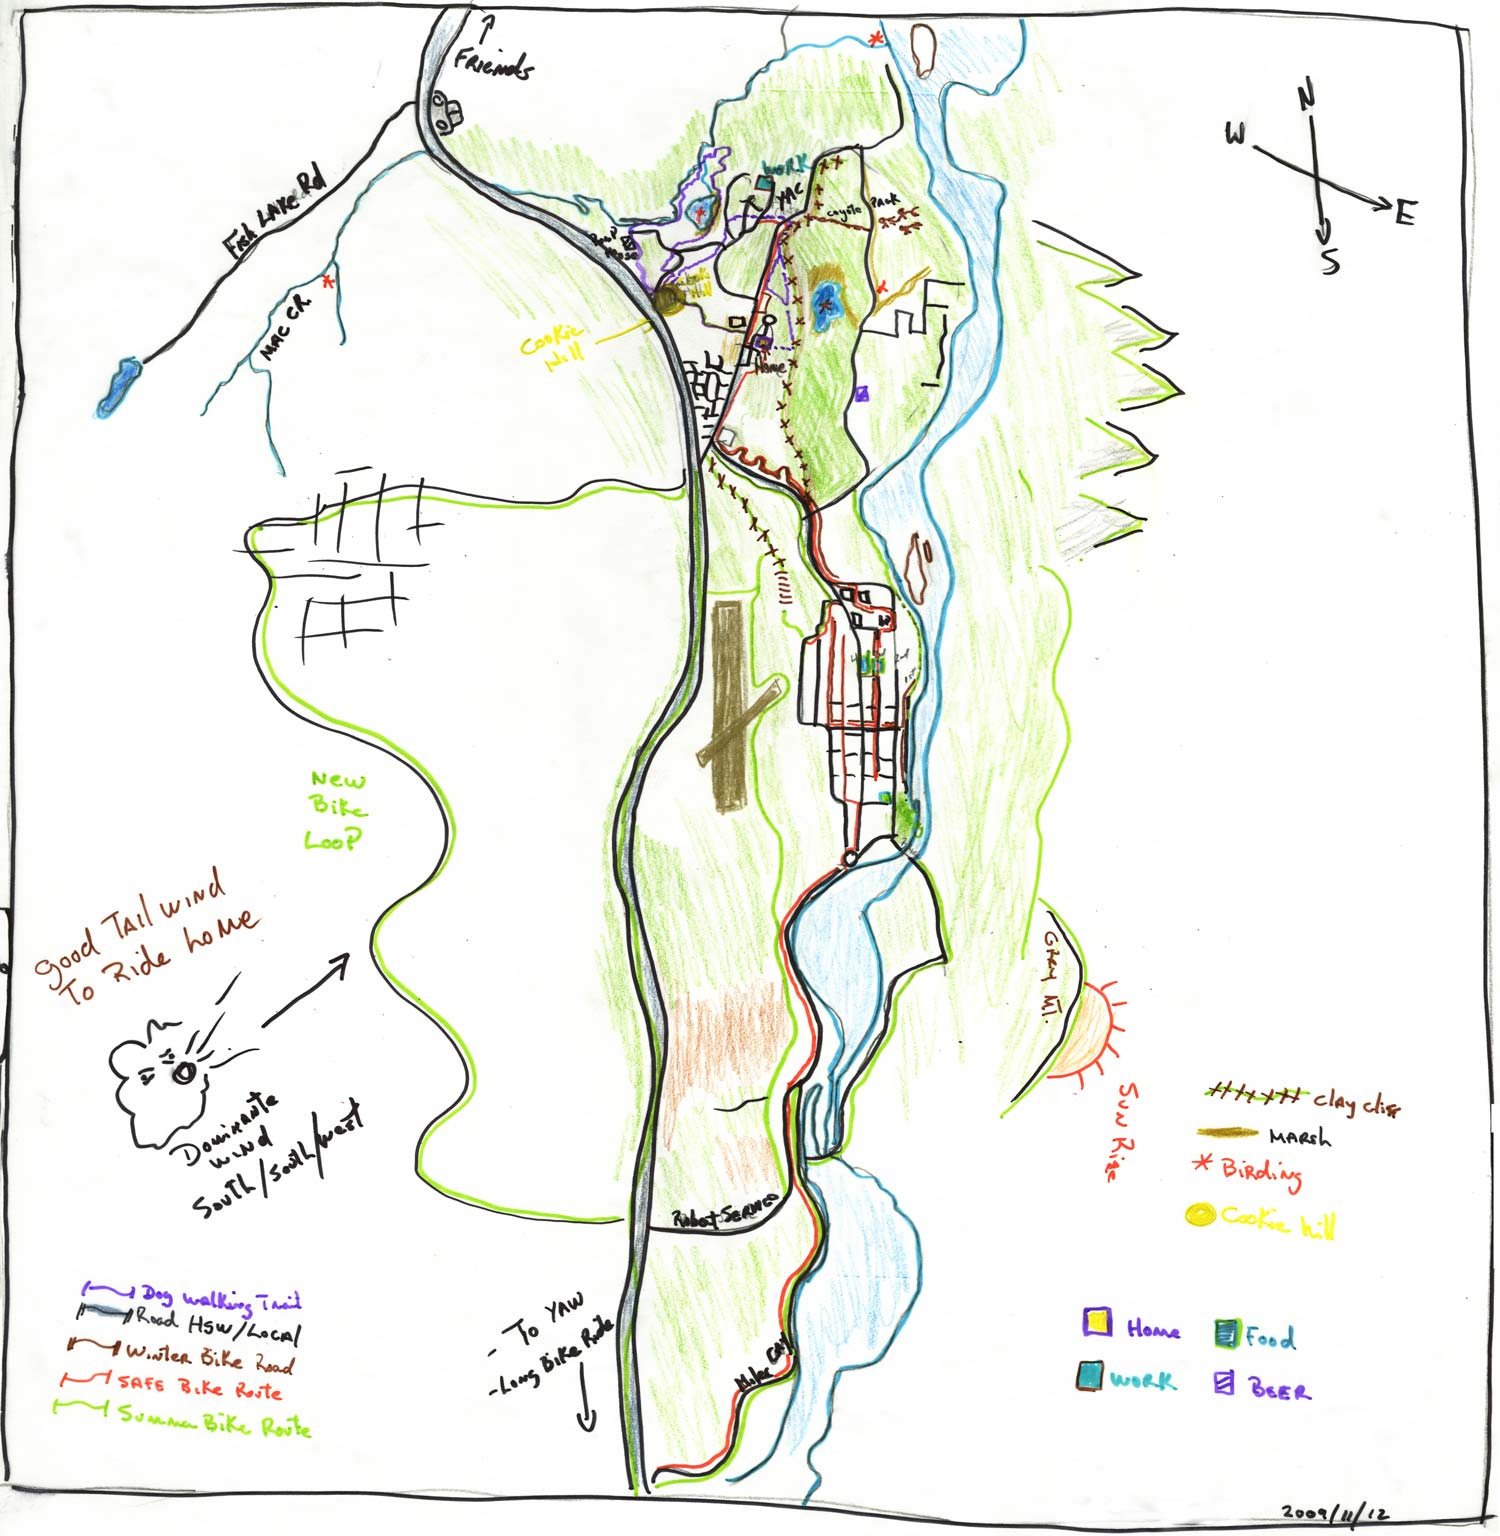 Friends
Fish Lake Rd
MAC CR.
WORK
YAC
Coyote
Park
Cookie
Hill
Home
N
W
E
S
New
Bike
Loop
good Tail wind
To Ride home
Dominante
wind
South/South/west
Gray Mt.
Sun Rise
Robert Service
- To YAW
- Long Bike Ride
Miles CAY
clay cliff
MARSH
Birding
Cookie hill
Dog walking Trail
Road HSW/Local
Winter Bike Road
SAFE Bike Route
Summa Bike Route
Home
Food
WORK
BEER
2009/11/12